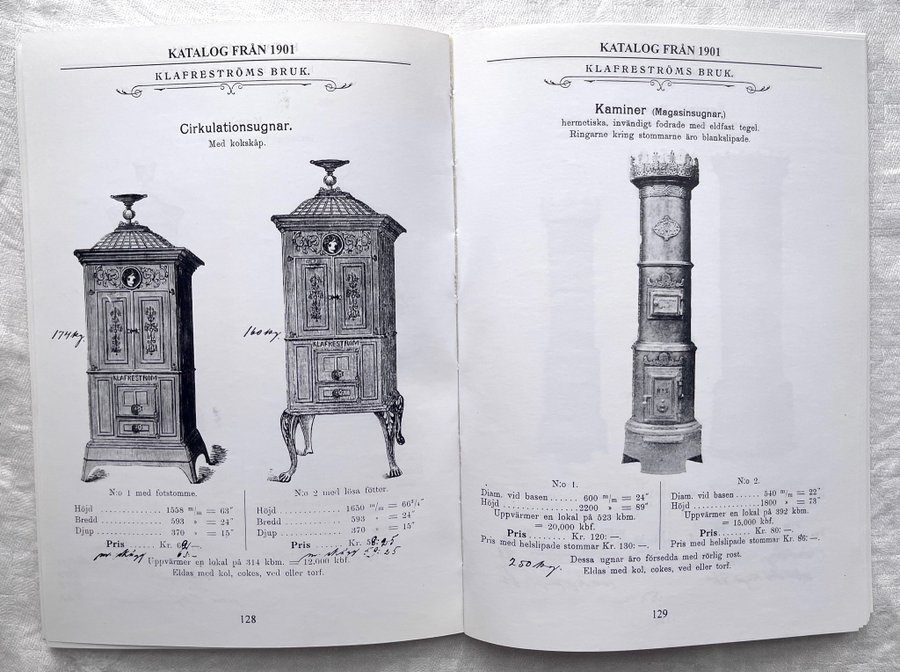 KATALOG FRÅN 1901
KLAFRESTRÖMS BRUK.
Cirkulationsugnar.
Med kokskåp.
174 kg.
160 kg.
KLAFRESTRÖM
KLAFRESTRÖM
N:o 1 med fotstomme.
Höjd 1558 m/m = 63"
Bredd 593 " = 24"
Djup 370 " = 15"
Pris Kr.
N:o 2 med lösa fötter.
Höjd 1650 m/m = 66 3/4"
Bredd 593 " = 24"
Djup 370 " = 15"
Pris Kr.
Uppvärmer en lokal på 314 kbm. = 12,000 kbf.
Eldas med kol, cokes, ved eller torf.
128
KATALOG FRÅN 1901
KLAFRESTRÖMS BRUK.
Kaminer (Magasinsugnar,)
hermetiska, invändigt fodrade med eldfast tegel.
Ringarne kring stommarne äro blankslipade.
N:o 1.
Diam. vid basen 600 m/m = 24"
Höjd 2200 " = 89"
Uppvärmer en lokal på 523 kbm.
= 20,000 kbf.
Pris Kr. 120: —.
Pris med helslipade stommar Kr. 130: —.
N:o 2.
Diam. vid basen 540 m/m = 22"
Höjd 1800 " = 73"
Uppvärmer en lokal på 392 kbm.
= 15,000 kbf.
Pris Kr. 80: —.
Pris med helslipade stommar Kr. 86: —.
250 kg.
Dessa ugnar äro försedda med rörlig rost.
Eldas med kol, cokes, ved eller torf.
129